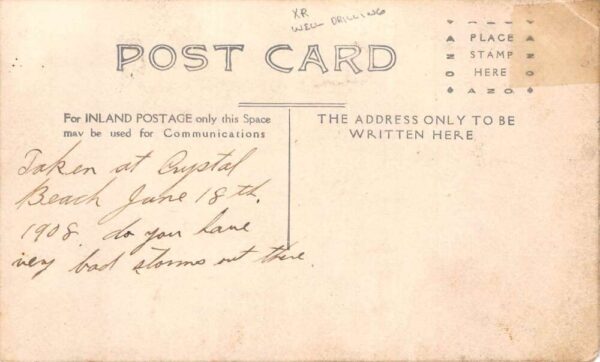 XR
WELL DRILLING
POST CARD
PLACE
STAMP
HERE
AZO
For INLAND POSTAGE only this Space
may be used for Communications
THE ADDRESS ONLY TO BE
WRITTEN HERE
Taken at Crystal
Beach June 18th.
1908. do you have
very bad storms out there.